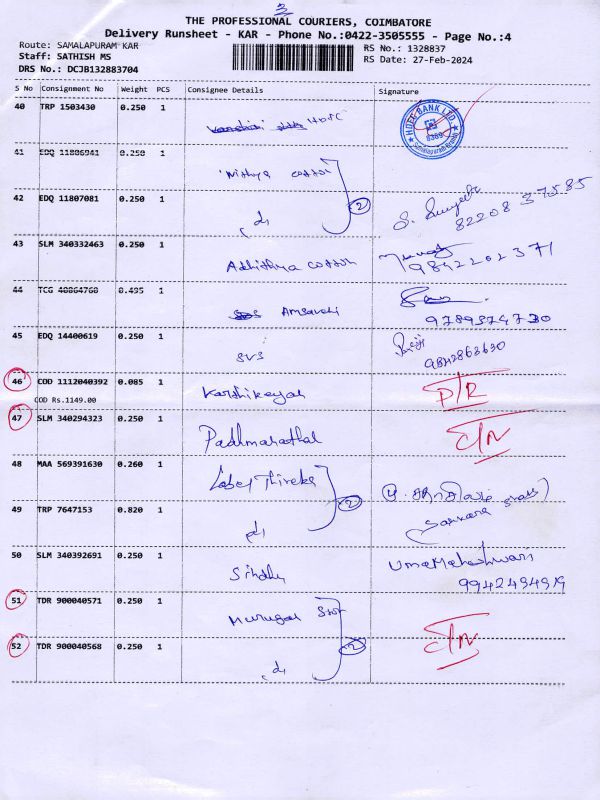 3
THE PROFESSIONAL COURIERS, COIMBATORE
Delivery Runsheet - KAR - Phone No.:0422-3505555 - Page No.:4
Route: SAMALAPURAM KAR
RS No.: 1328837
Staff: SATHISH MS
RS Date: 27-Feb-2024
DRS No.: DCJB132883704
S No Consignment No Weight PCS Consignee Details Signature
40 TRP 1503430 0.250 1 HDFC
HDFC BANK LTD
41 EDQ 11806941 0.250 1 Nithya cotton
2
42 EDQ 11807081 0.250 1 do
82208 37585
43 SLM 340332463 0.250 1 Adhithya cotton
9842202371
44 TCG 40864760 0.495 1 Amsaveni
9789374730
45 EDQ 14400619 0.250 1 SVS
9842863630
46 COD 1112040392 0.085 1 Karthikeyan
COD Rs.1149.00
47 SLM 340294323 0.250 1
48 MAA 569391630 0.260 1
2
49 TRP 7647153 0.820 1 do
50 SLM 340392691 0.250 1 Sindhu UmaMaheshwari
9942494919
51 TDR 900040571 0.250 1 Murugan
2
52 TDR 900040568 0.250 1 do